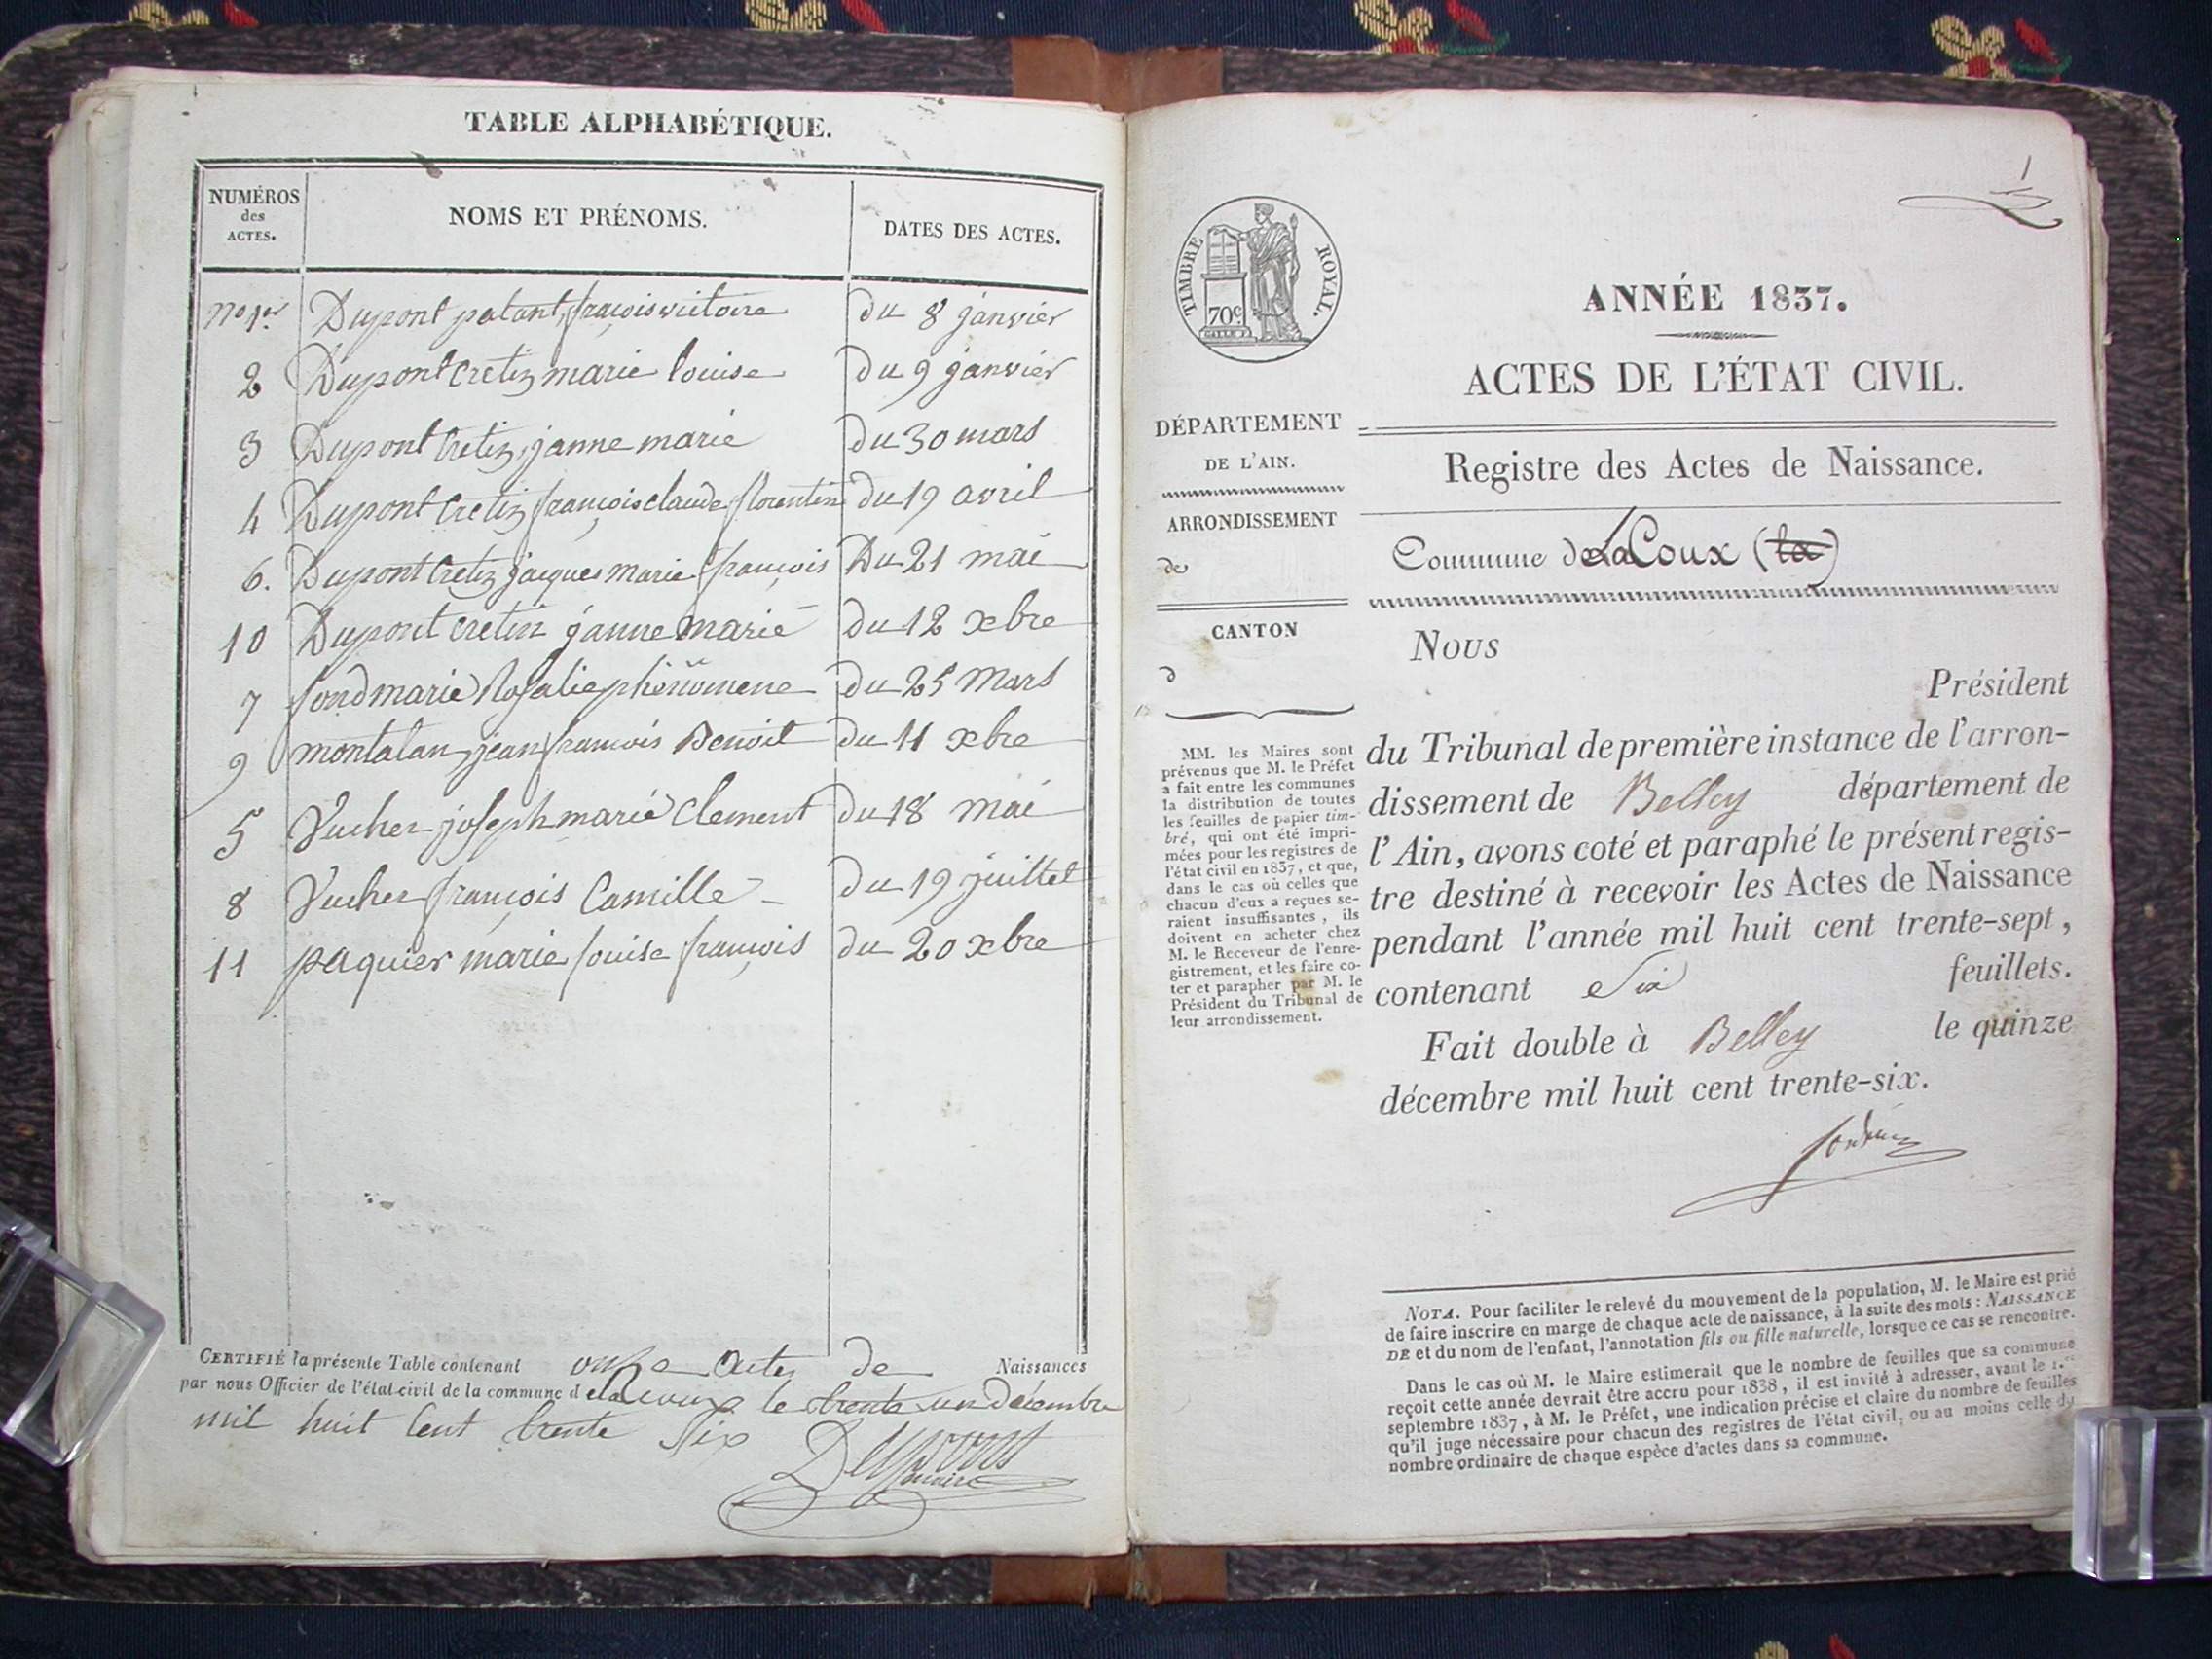 TABLE ALPHABÉTIQUE.
NUMÉROS des ACTES. NOMS ET PRÉNOMS. DATES DES ACTES.
no 1er Dupont patant, françois victoire du 8 janvier
2 Dupont Cretin marie louise du 9 janvier
3 Dupont Cretin, janne marie du 30 mars
4 Dupont Cretin françois claude florentin du 19 avril
6. Dupont Cretin jacques marie françois Du 21 mai
10 Dupont cretin janne marie du 12 xbre
7 fond marie Rosalie phenomene du 25 Mars
9 montatan, jean francois Benoit du 11 xbre
5 Vucher joseph marie Clement du 18 mai
8 Vucher françois Camille du 19 juillet
11 paquier marie louise françois du 20 xbre
CERTIFIÉ la présente Table contenant onze actes de Naissances
par nous Officier de l'état civil de la commune d le trente un Décembre
mil huit Cent trente Six
Dupont
maire
1
TIMBRE ROYAL.
70c.
ANNÉE 1837.
ACTES DE L'ÉTAT CIVIL.
Registre des Actes de Naissance.
Commune de La Coux (la)
DÉPARTEMENT
DE L'AIN.
ARRONDISSEMENT
de
CANTON
d
MM. les Maires sont
prévenus que M. le Préfet
a fait entre les communes
la distribution de toutes
les feuilles de papier tim-
bré, qui ont été impri-
mées pour les registres de
l'état civil en 1837, et que,
dans le cas où celles que
chacun d'eux a reçues se-
raient insuffisantes, ils
doivent en acheter chez
M. le Receveur de l'enre-
gistrement, et les faire co-
ter et parapher par M. le
Président du Tribunal de
leur arrondissement.
Nous
Président
du Tribunal de première instance de l'arron-
dissement de Belley département de
l'Ain, avons coté et paraphé le présent regis-
tre destiné à recevoir les Actes de Naissance
pendant l'année mil huit cent trente-sept,
contenant Six feuillets.
Fait double à Belley le quinze
décembre mil huit cent trente-six.
NOTA. Pour faciliter le relevé du mouvement de la population, M. le Maire est prié
de faire inscrire en marge de chaque acte de naissance, à la suite des mots : NAISSANCE
DE et du nom de l'enfant, l'annotation fils ou fille naturelle, lorsque ce cas se rencontre.
Dans le cas où M. le Maire estimerait que le nombre de feuilles que sa commune
reçoit cette année devrait être accru pour 1838, il est invité à adresser, avant le 1.er
septembre 1837, à M. le Préfet, une indication précise et claire du nombre de feuilles
qu'il juge nécessaire pour chacun des registres de l'état civil, ou au moins celle du
nombre ordinaire de chaque espèce d'actes dans sa commune.